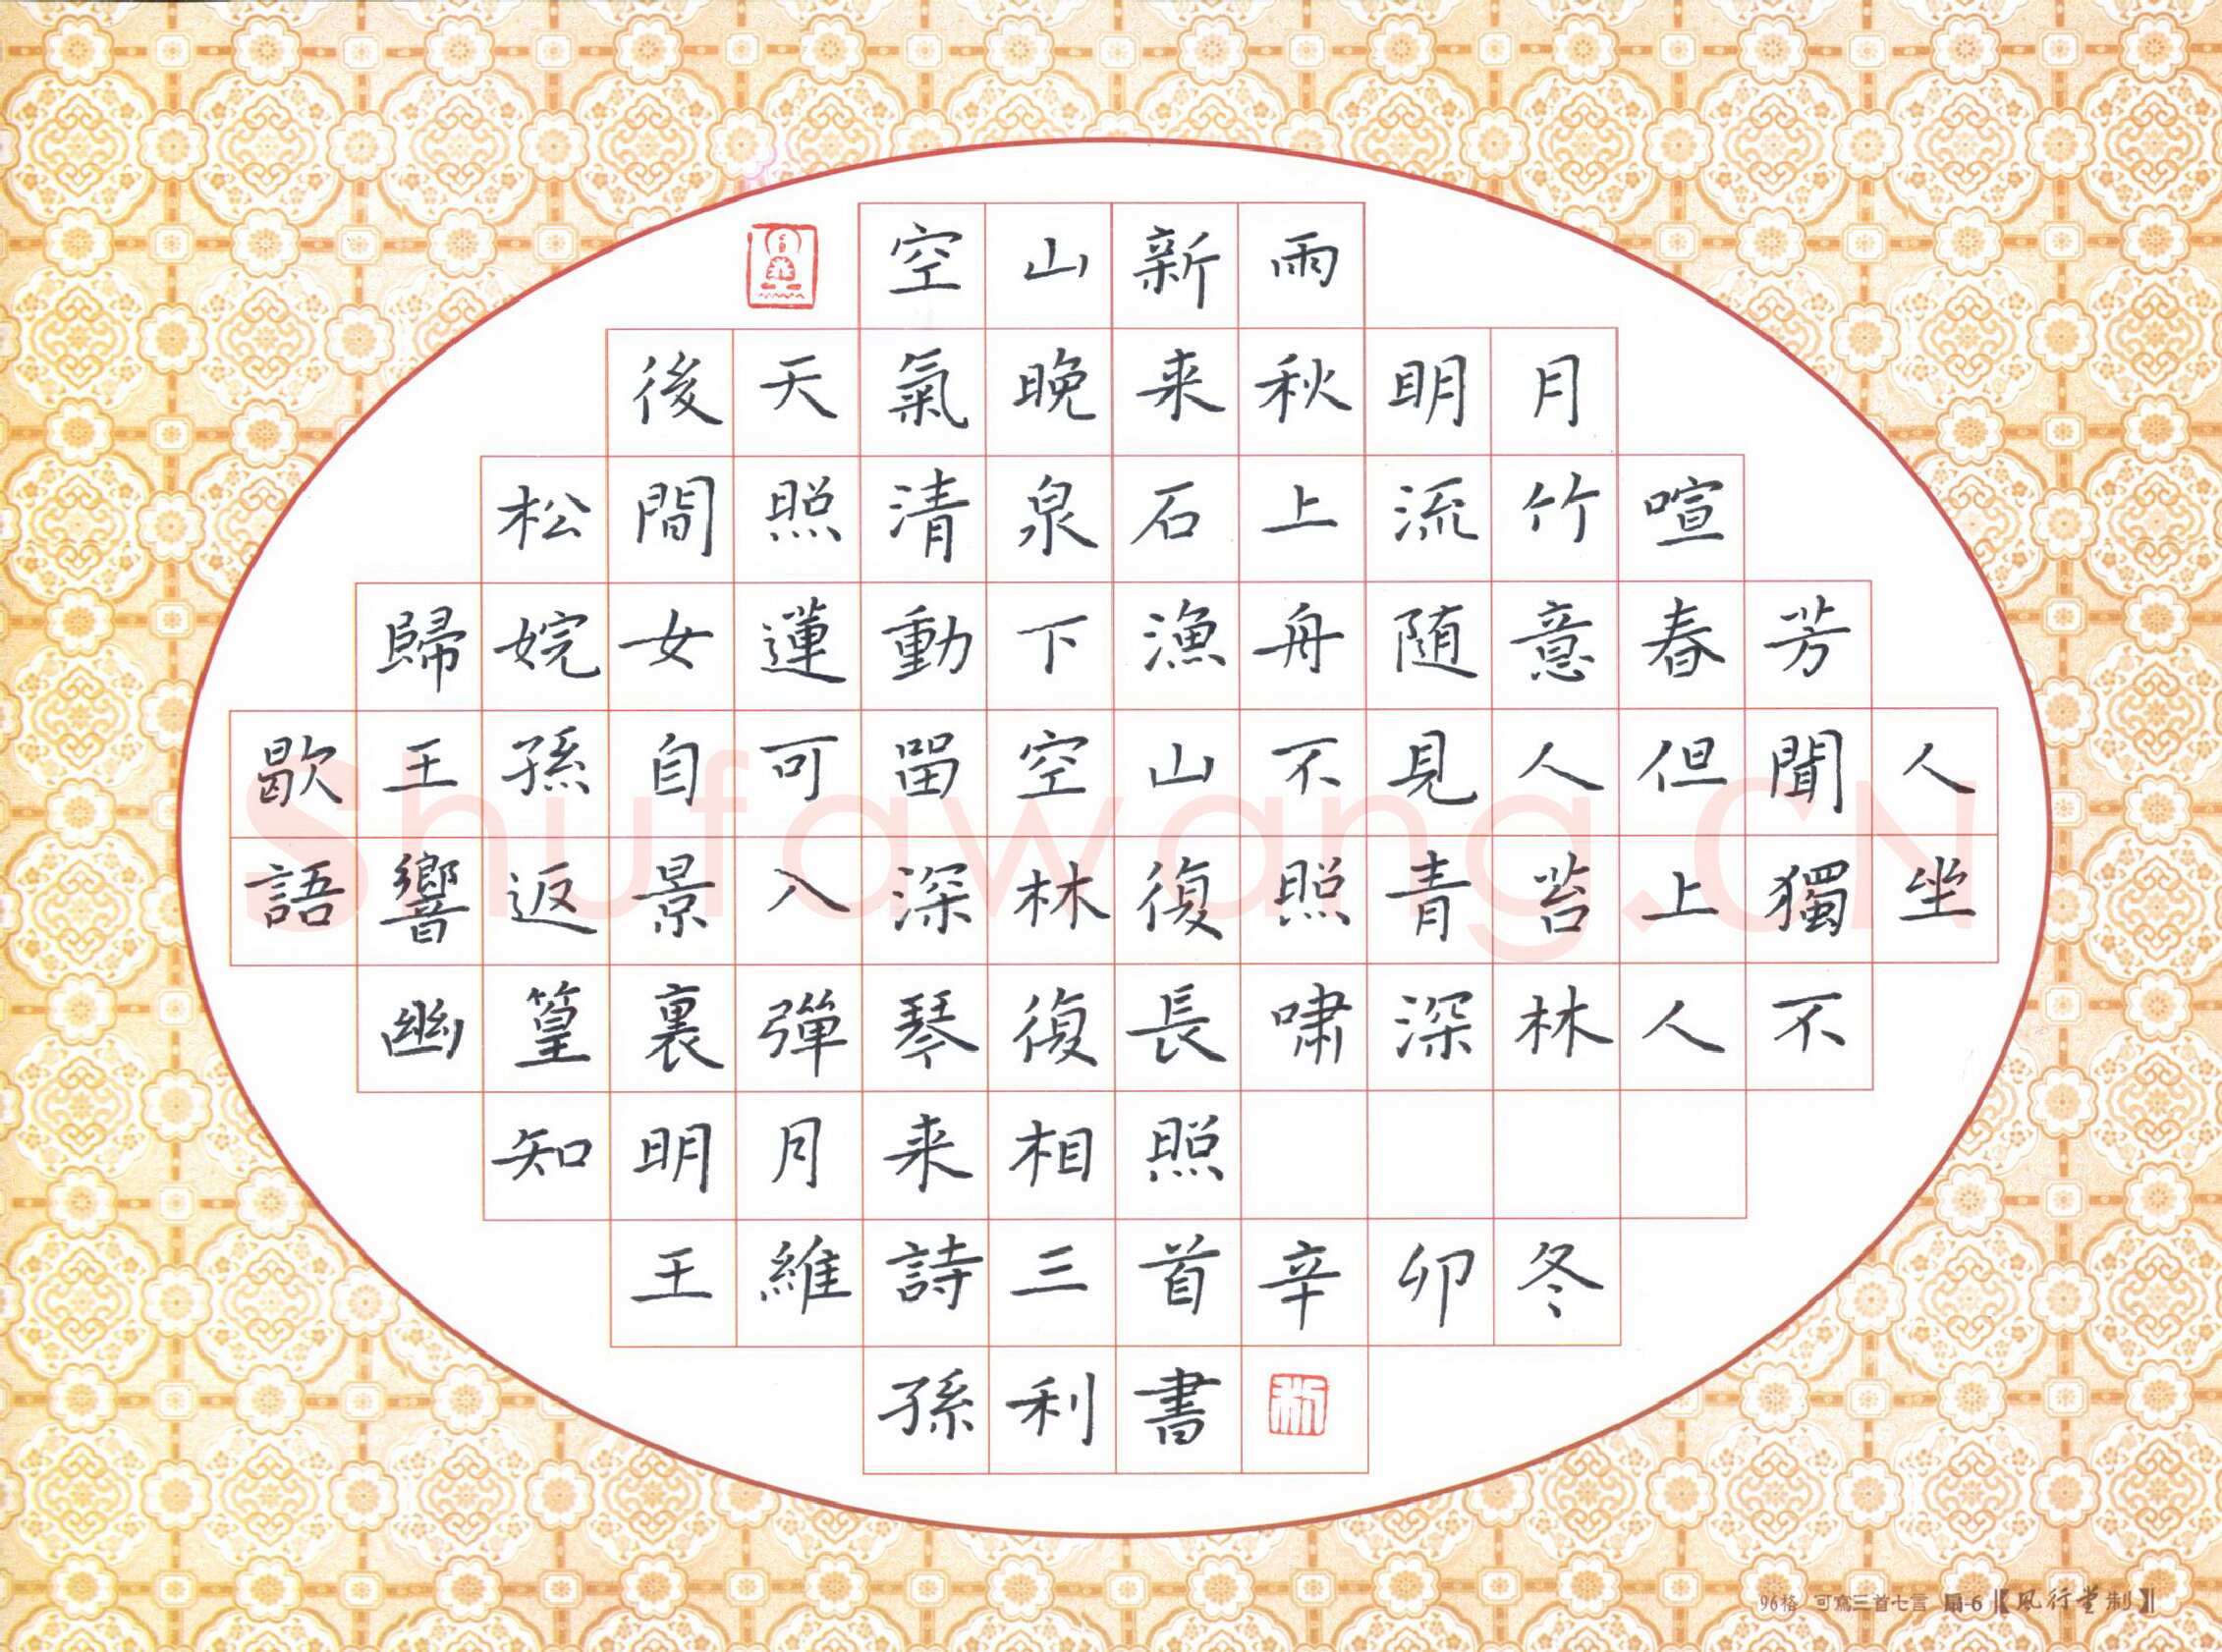 空山新雨
後天氣晚来秋明月
松間照清泉石上流竹喧
歸婉女蓮動下漁舟随意春芳
歇王孫自可留空山不見人但聞人
語響返景入深林復照青苔上獨坐
幽篁裏彈琴復長嘯深林人不
知明月来相照
王維詩三首辛卯冬
孫利書
shufawang.CN
96格 可寫三首七言 扇-6【風行堂制】